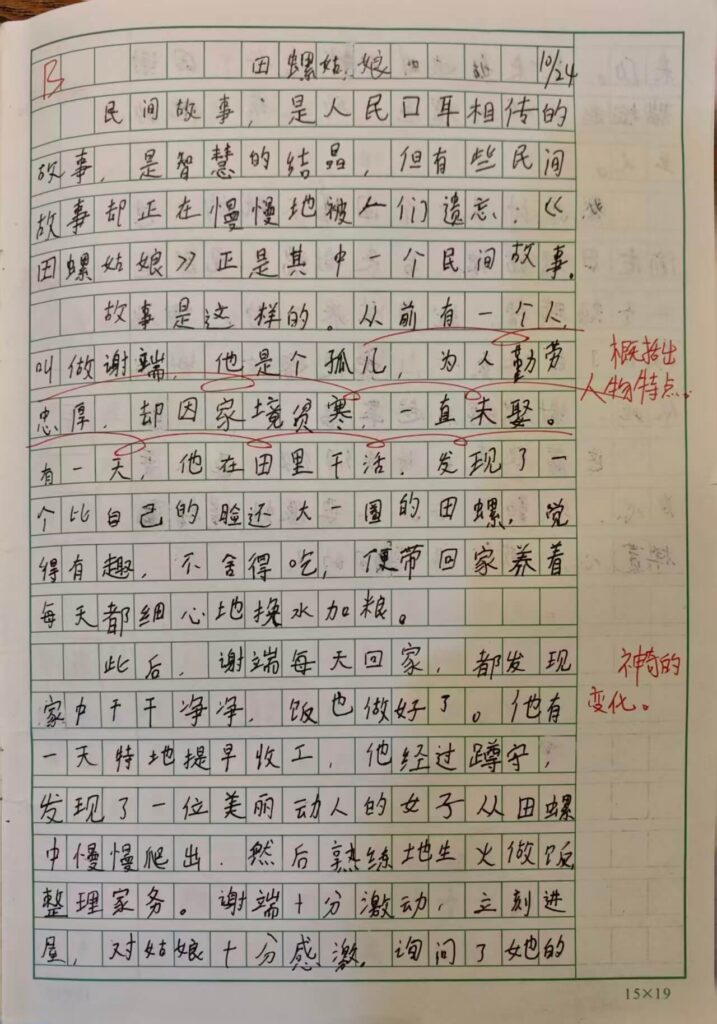 B 田螺姑娘 10/24
民间故事，是人民口耳相传的
故事，是智慧的结晶，但有些民间
故事却正在慢慢地被人们遗忘，《
田螺姑娘》正是其中一个民间故事。
故事是这样的。从前有一个人，
叫做谢端，他是个孤儿，为人勤劳
概括出
人物特点。
忠厚，却因家境贫寒，一直未娶。
有一天，他在田里干活，发现了一
个比自己的脸还大一圈的田螺，觉
得有趣，不舍得吃，便带回家养着
每天都细心地换水加粮。
此后，谢端每天回家，都发现
神奇的
变化。
家中干干净净，饭也做好了。他有
一天特地提早收工，他经过蹲守，
发现了一位美丽动人的女子从田螺
中慢慢爬出，然后熟练地生火做饭
整理家务。谢端十分激动，立刻进
屋，对姑娘十分感激，询问了她的
15×19